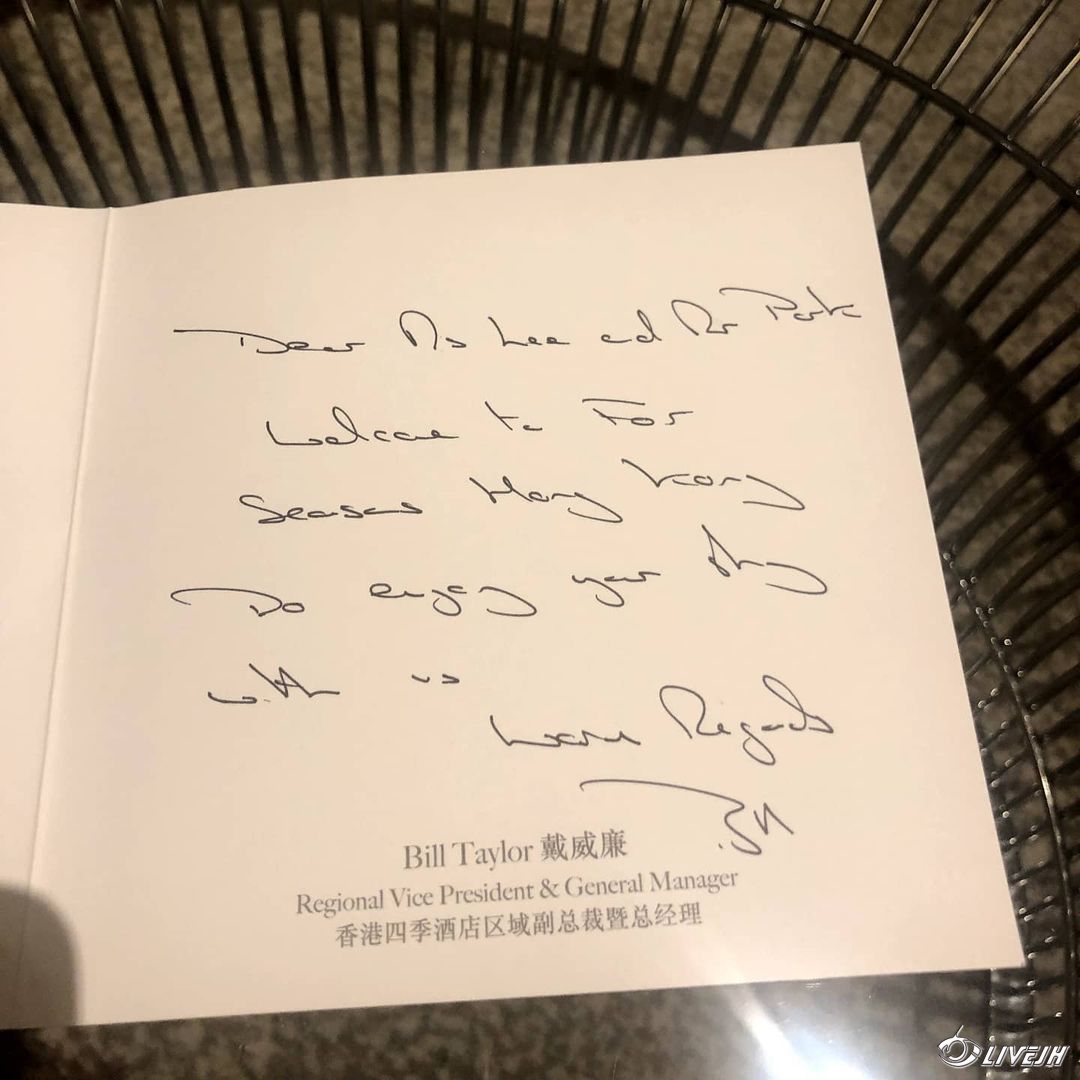 Dear Ms Lee and Mr Park
Welcome to Four
Seasons Hong Kong
Do enjoy your stay
with us
Warm Regards
Bill
Bill Taylor 戴威廉
Regional Vice President & General Manager
香港四季酒店区域副总裁暨总经理
LIVEJH